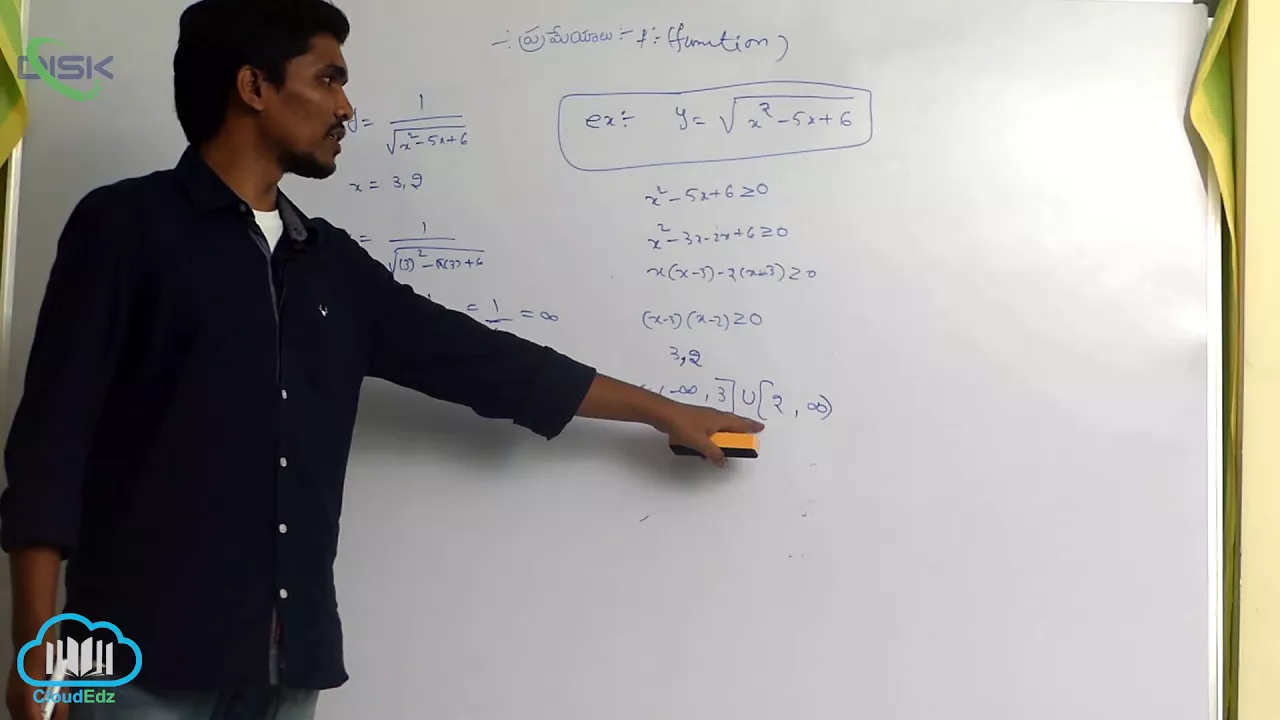 DISK
-: ప్రమేయాలు :- f :- (function)
y = 1/√(x²-5x+6)
x = 3,2
= 1/√((3)²-5(3)+6)
= 1 = ∞
ex:- y = √(x²-5x+6)
x²-5x+6≥0
x²-3x-2x+6≥0
x(x-3)-2(x-3)≥0
(x-3)(x-2)≥0
3,2
-∞, 3]∪[2, ∞)
CloudEdz